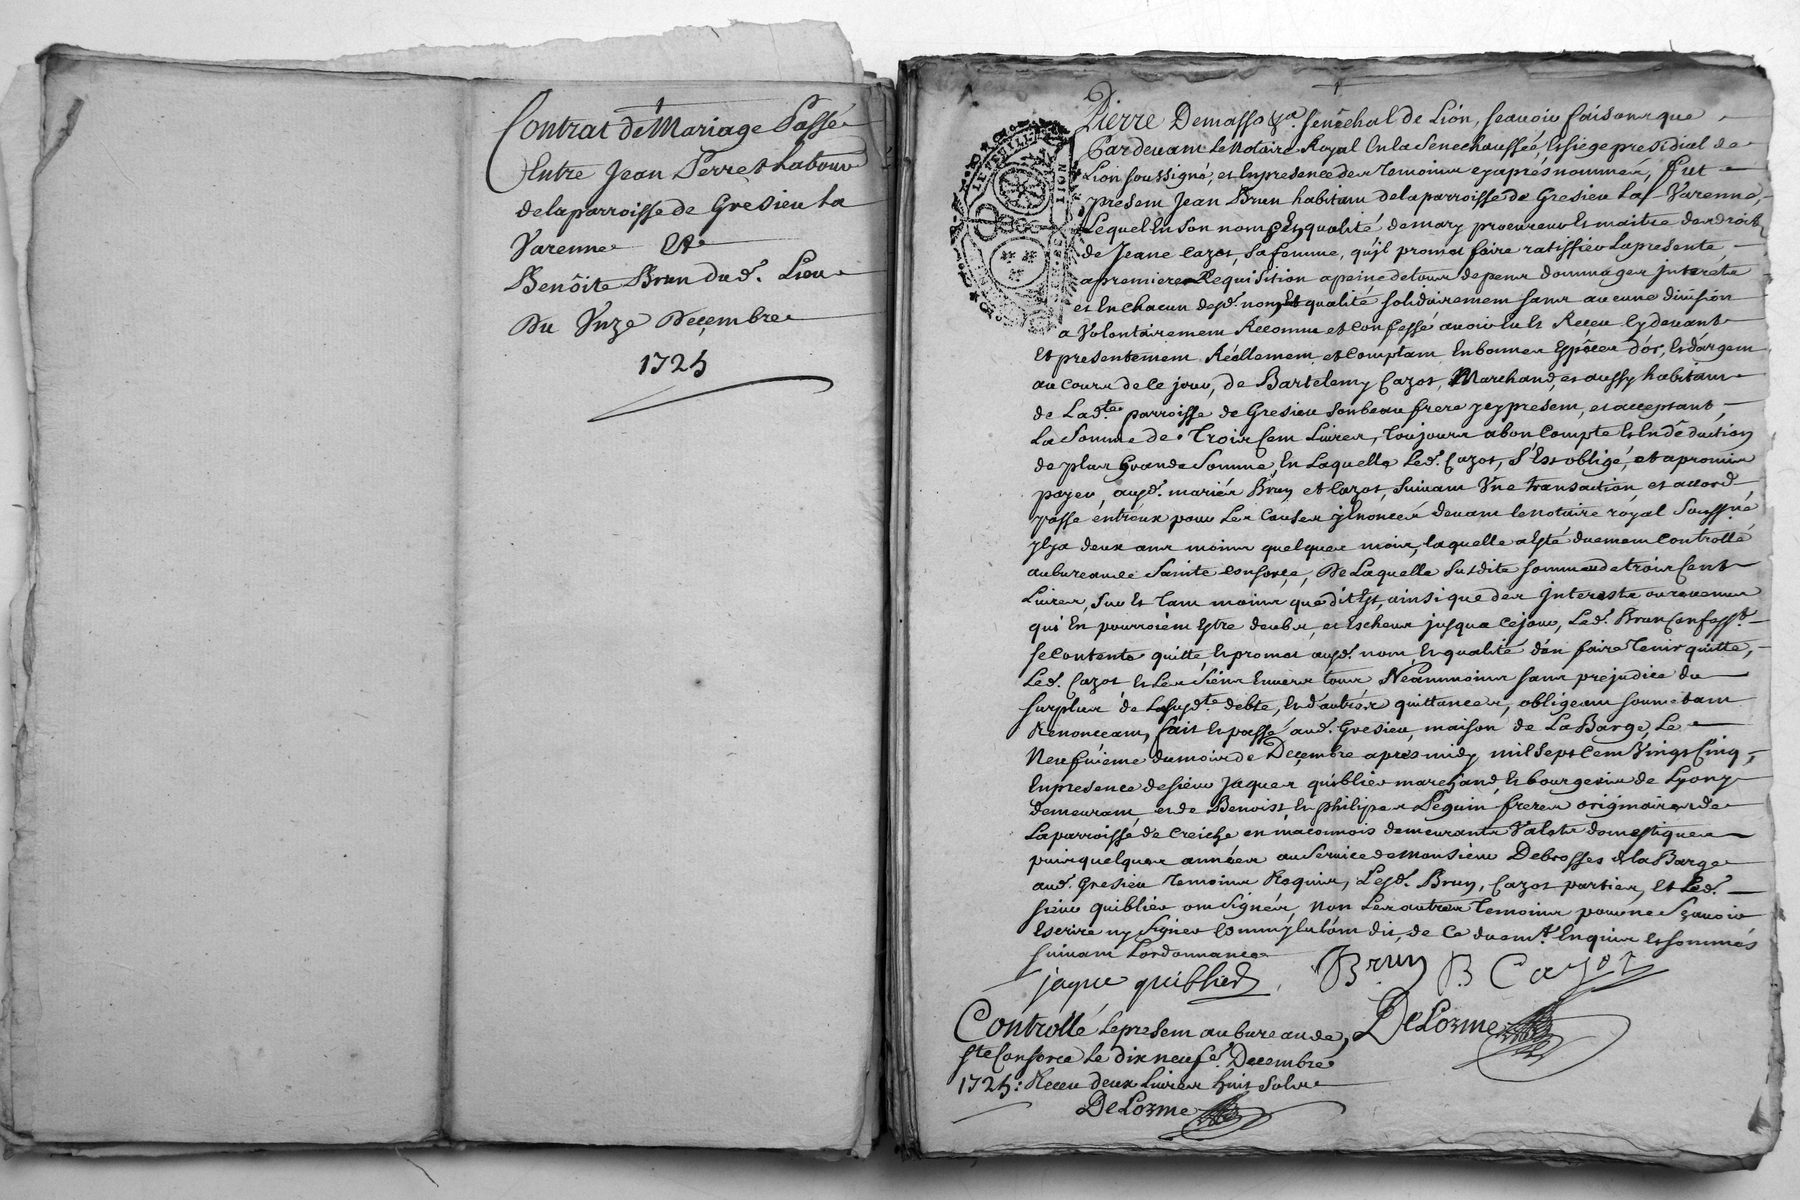 Contrat de Mariage Passé
Entre Jean Perret habour
de la parroisse de Gresieu La
Varenne Et
Benoîte Brun dud. Lieu
Du Unze Decembre
1725
Pierre Demasso &a. senéchal de Lion, scavoir faisons que
Pardevant Le Notaire Royal En La Senechaussée, Et siege presidial de
Lion soussigné, et En presence des temoins cy aprés nommés, fut
present Jean Brun habitant de la parroisse de Gresieu La Varenne,
Lequel En son nom Et qualité de mary procureur Et maitre des droits
de Jeane Cazot, sa femme, qu'il promet faire ratiffier La presente
a premiere Requisition a peine de tous depens dommages interéts
et En chacun desd. noms Et qualité solidairement sans aucune division
a Volontairement Reconnu et Confessé avoir Eu Et Receu Cy devant
Et presentement Réellement et comptant En bonnes Espéces d'or, Et d'argent
au cours de Ce jour, de Bartelemy Cazot, Marchand, et aussy habitant
de Lad.te parroisse de Gresieu son beau frere icy present, et acceptant,
La Somme de Trois Cent Livres, Toujours a bon Compte Et En déduction
de plus Grande Somme, En Laquelle Led. Cazot, s'Est obligé, et a promis
payer, ausd. mariés Brun et Cazot, suivant Une transaction et accord
passé éntr'eux pour Les Causes y Enoncés devant le notaire royal Soussné
il y a deux ans moins quelques mois, laquelle a Esté duement Controllé
au bureau de Sainte Consorce, De Laquelle Susdite somme de trois Cent
Livres, Sur Et tant moins que dit Est, ainsi que des Interests ou revenus
qui En pourroient Estre deubs, et Escheus jusqu'a Ce jour, Led. Brun Confess.t
se Contente quitte Et promet ausd. nom, Et qualité d'en faire Tenir quitte,
Led. Cazot Et Les Siens Envers tous Néanmoins sans prejudice du
surplus de Lasusd.te debte, Et d'autres quittances, obligeant soumetant
Renonceant, fait Et passé aud. Gresieu maison de La Barge, Le
Neufvieme du mois de Decembre aprés midy mil sept Cent Vingt Cinq,
En presence de sieur Jaques quiblier marchand, Et bourgeois de Lyon y
demeurant, et de Benoist Et philipes Peguin freres originaires de
La parroisse de Creiche en maconnois demeurants Valets domestiques
puis quelques années au Service de Monsieur Debrosses de la Barge
aud. Gresieu Temoins Requis, Lesd. Brun, Cazot parties, Et Led.
sieur quiblier ont signés, Non Les autres Temoins pour ne Sçavoir
Escrire ny Signer Comm'ylz l'ont dit, de Ce duem.t Enquis Et sommés
suivant L'ordonnance
jaque quiblier Brun B Cazot
DeLorme
Controllé Le present au bureau de
S.te Consorce Le dix neuf e. Decembre
1725: Receu deux Livres huit Sols
DeLorme